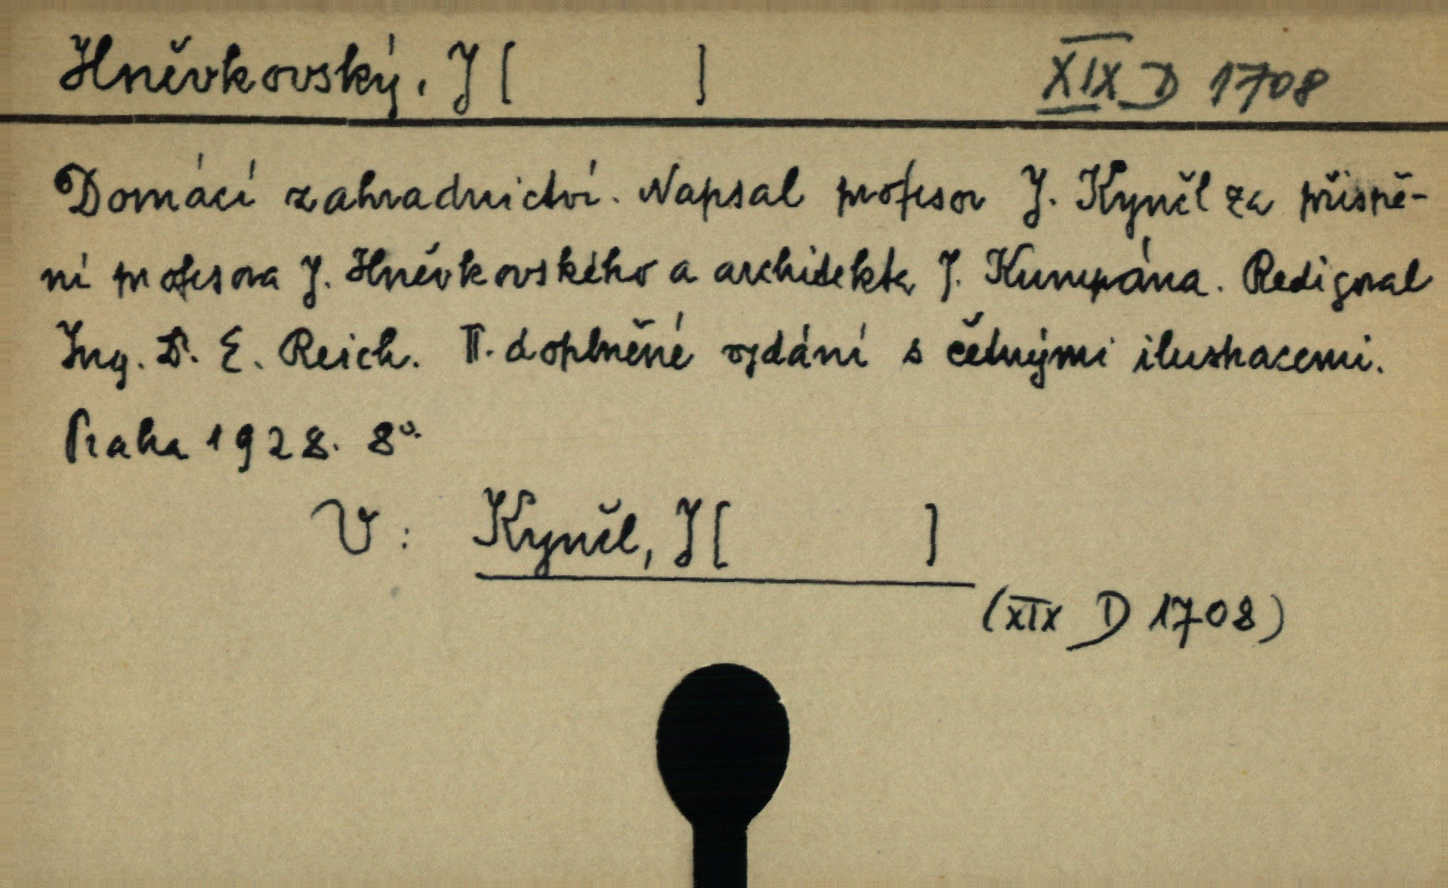 Hněvkovský, J [ ] XIX D 1708
Domácí zahradnictví. Napsal profesor J. Kynčl za přispě-
ní profesora J. Hněvkovského a architekta J. Kumpána. Redigoval
Ing. Dr. E. Reich. II. doplněné vydání s četnými ilustracemi.
Praha 1928. 8°.
V: Kynčl, J [ ]
(XIX D 1708)